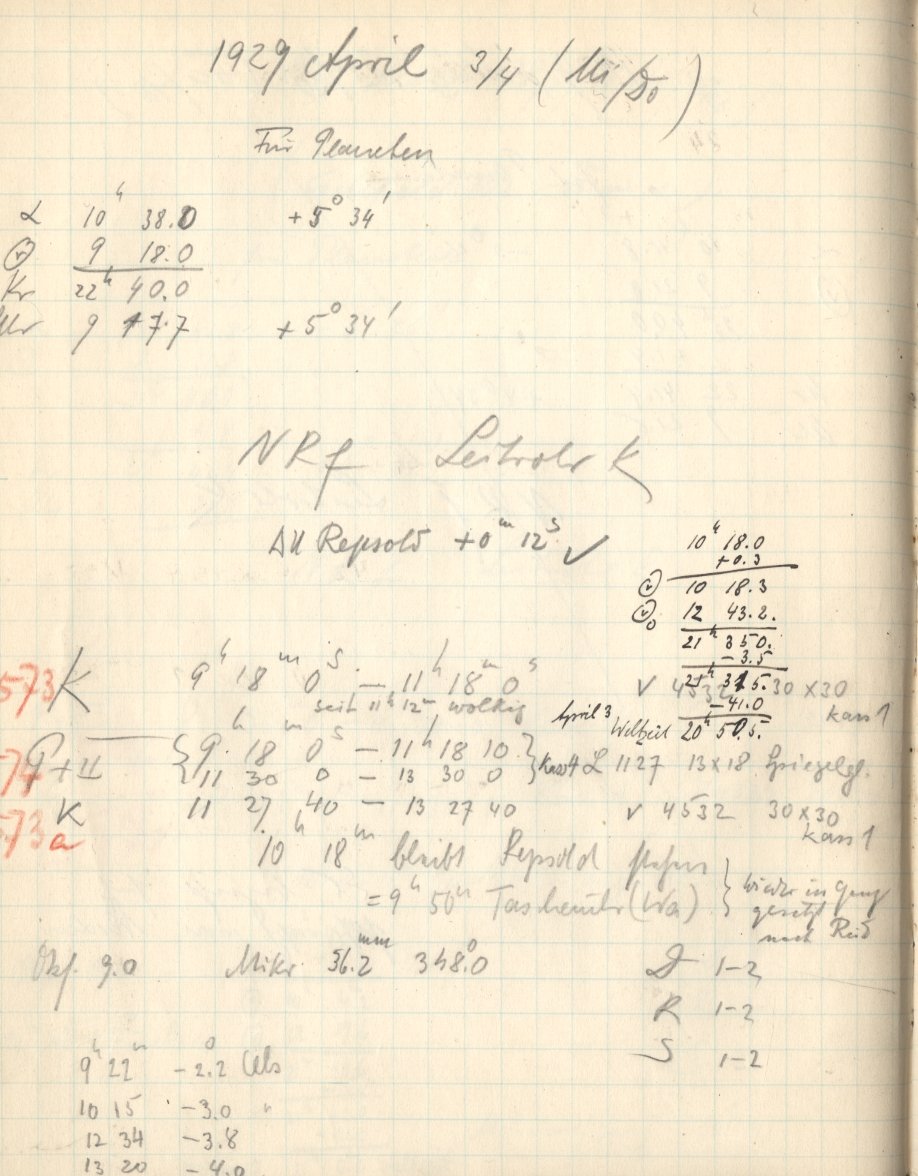 1929 April 3/4 (Mi/Do)
Für Planeten
α 10ʰ 38.0 +5° 34'
9 18.0
Kr 22ʰ 40.0
Uhr 9 17.7 +5° 34'
NRf Leitrohr K
ΔU Repsold +0ᵐ 12ˢ ✓
10ʰ 18.0
+0.3
10 18.3
12 43.2.
21ʰ 35 0.
-3.5
21ʰ 31 5.
-41.0
April 3 Weltzeit 20ʰ 50.5.
573 K 9ʰ 18ᵐ 0ˢ — 11ʰ 18ᵐ 0ˢ v 4532 30×30
seit 11ʰ 12ᵐ wolkig Kass 1
9ʰ 18ᵐ 0ˢ — 11ʰ 18 10
74 P+II 11 30 0 — 13 30 0 Kass 4 L 1127 13×18 Spiegelgl.
K 11 27 40 — 13 27 40 v 4532 30×30
73a Kass 1
10ʰ 18ᵐ bleibt Repsold stehen
= 9ʰ 50ᵐ Taschenuhr (Wa)
wieder in Gang
gesetzt
nach
Okf. 9.0 Mikr 36.2ᵐᵐ 348.0° D 1-2
R 1-2
S 1-2
9ʰ 22ᵐ -2.2° Cels
10 15 -3.0 "
12 34 -3.8
13 20 -4.0